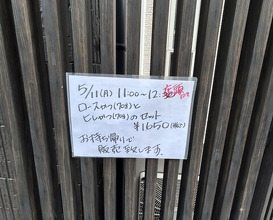 5/11(月) 11:00〜12:
ロースかつ(7ヶ)と
ヒレかつ(7ヶ)のセット
¥1650(税込)
お持ち帰りで
販売致します。